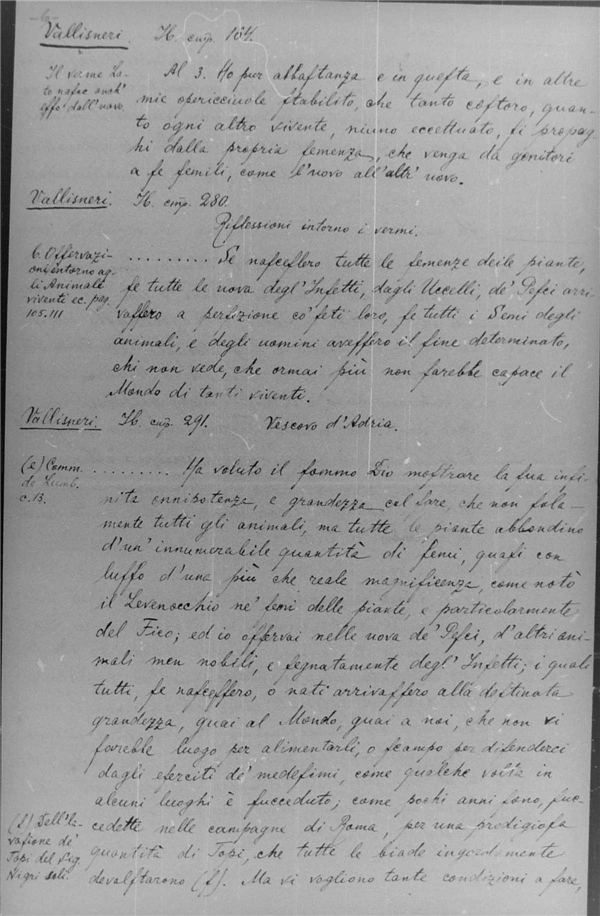 -6-
Vallisneri. Ib. cmp. 104.
Il verme La-
to nasce anch'
esso dall'uovo.
Al 3. Ho pur abbaftanza e in quefta, e in altre
mie opericciuole ftabilito, che tanto coftoro, quan-
to ogni altro vivente, niuno eccettuato, fi propag-
hi dalla propria femenza, che venga da genitori
a fe femili, come l'uovo all'altr' uovo.
Vallisneri. Ib. cmp. 280.
Rifleffioni intorno i vermi.
6. Offervazi-
oni intorno ag-
li Animali
viventi ec. pag.
105.111
......... Se nafceffero tutte le femenze delle piante,
fe tutte le uova degl' Infetti, dagli Uccelli, de' Pefci arri-
vaffero a perfezione co' feti loro, fe tutti i Semi degli
animali, e degli uomini aveffero il fine determinato,
chi non vede, che ormai più non farebbe capace il
Mondo di tanti viventi.
Vallisneri. Ib. cmp. 291. Vescovo d'Adria.
(e) Comm.
de Lumb.
c. 13.
......... Ha voluto il fommo Dio moftrare la sua infi-
nita onnipotenza, e grandezza col fare, che non fola-
mente tutti gli animali, ma tutte le piante abbondino
d'un' innumerabile quantità di femi, quafi con
luffo d'una più che reale magnificenza, come notò
il Levenocchio ne' femi delle piante, e particolarmente
del Fico; ed io offervai nelle uova de' Pefci, d'altri ani-
mali men nobili, e fegnatamente degl' Infetti; i quali
tutti, fe nafceffero, o nati arrivaffero alla deftinata
grandezza, guai al Mondo, guai a noi, che non vi
farebbe luogo per alimentarli, o fcampo per difenderci
dagli eferciti de' medefimi, come qualche volta in
alcuni luoghi è fucceduto; come pochi anni fono, fuc-
cedette nelle campagne di Roma, per una prodigiofa
quantità di Topi, che tutte le biade ingordamente
devaftarono (f). Ma vi vogliono tante condizioni a fare,
(f) Dell'
de'
Topi del Sig.